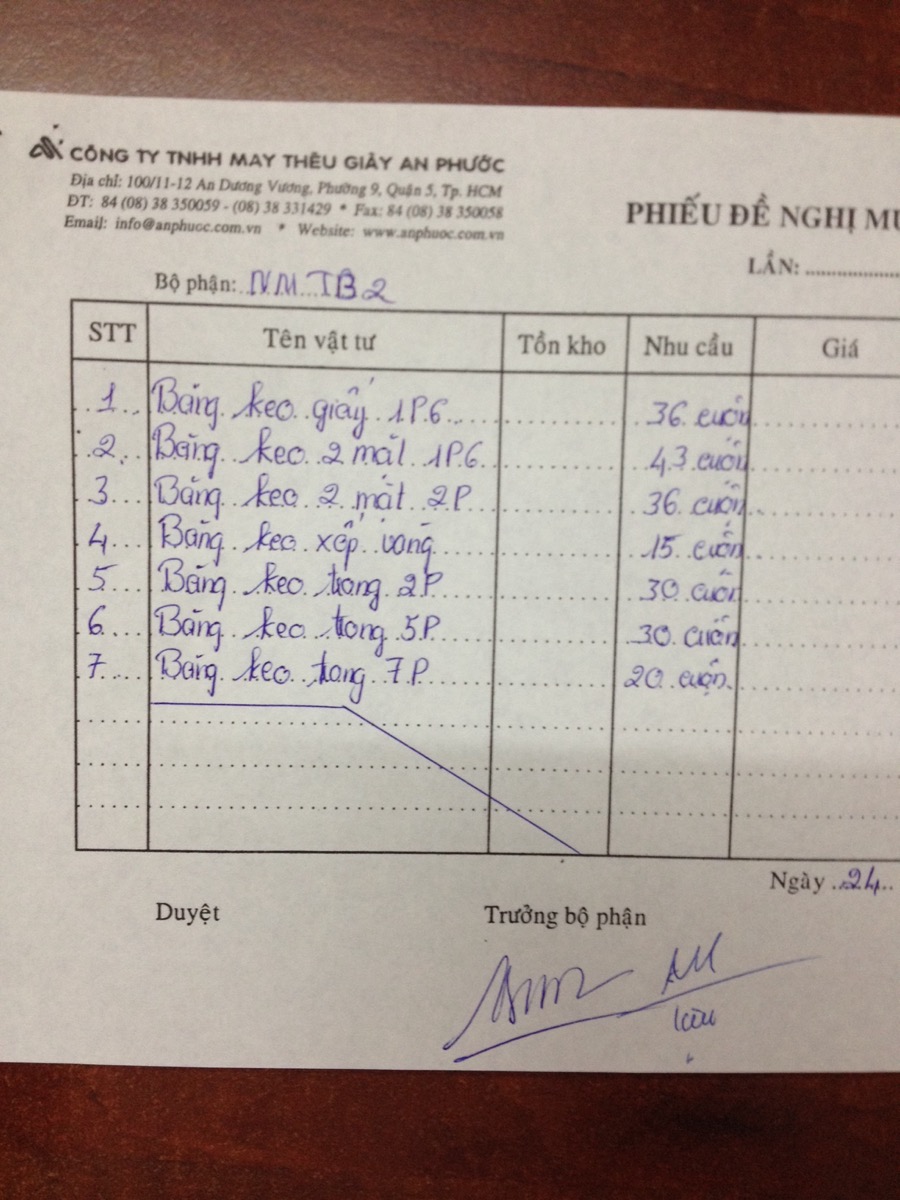 CÔNG TY TNHH MAY THÊU GIÀY AN PHƯỚC
Địa chỉ: 100/11-12 An Dương Vương, Phường 9, Quận 5, Tp. HCM
ĐT: 84 (08) 38 350059 - (08) 38 331429 * Fax: 84 (08) 38 350058
Email: info@anphuoc.com.vn * Website: www.anphuoc.com.vn
PHIẾU ĐỀ NGHỊ MU
LẦN: ....................
Bộ phận: N.M...TB2
STT Tên vật tư Tồn kho Nhu cầu Giá
1 Băng keo giấy 1P6 36 cuốn
2 Băng keo 2 mặt 1P6 43 cuốn
3 Băng keo 2 mặt 2P 36 cuốn
4 Băng keo xốp vàng 15 cuốn
5 Băng keo trong 2P 30 cuốn
6 Băng keo trong 5P 30 cuốn
7 Băng keo trong 7P 20 cuộn
Ngày 24
Duyệt Trưởng bộ phận